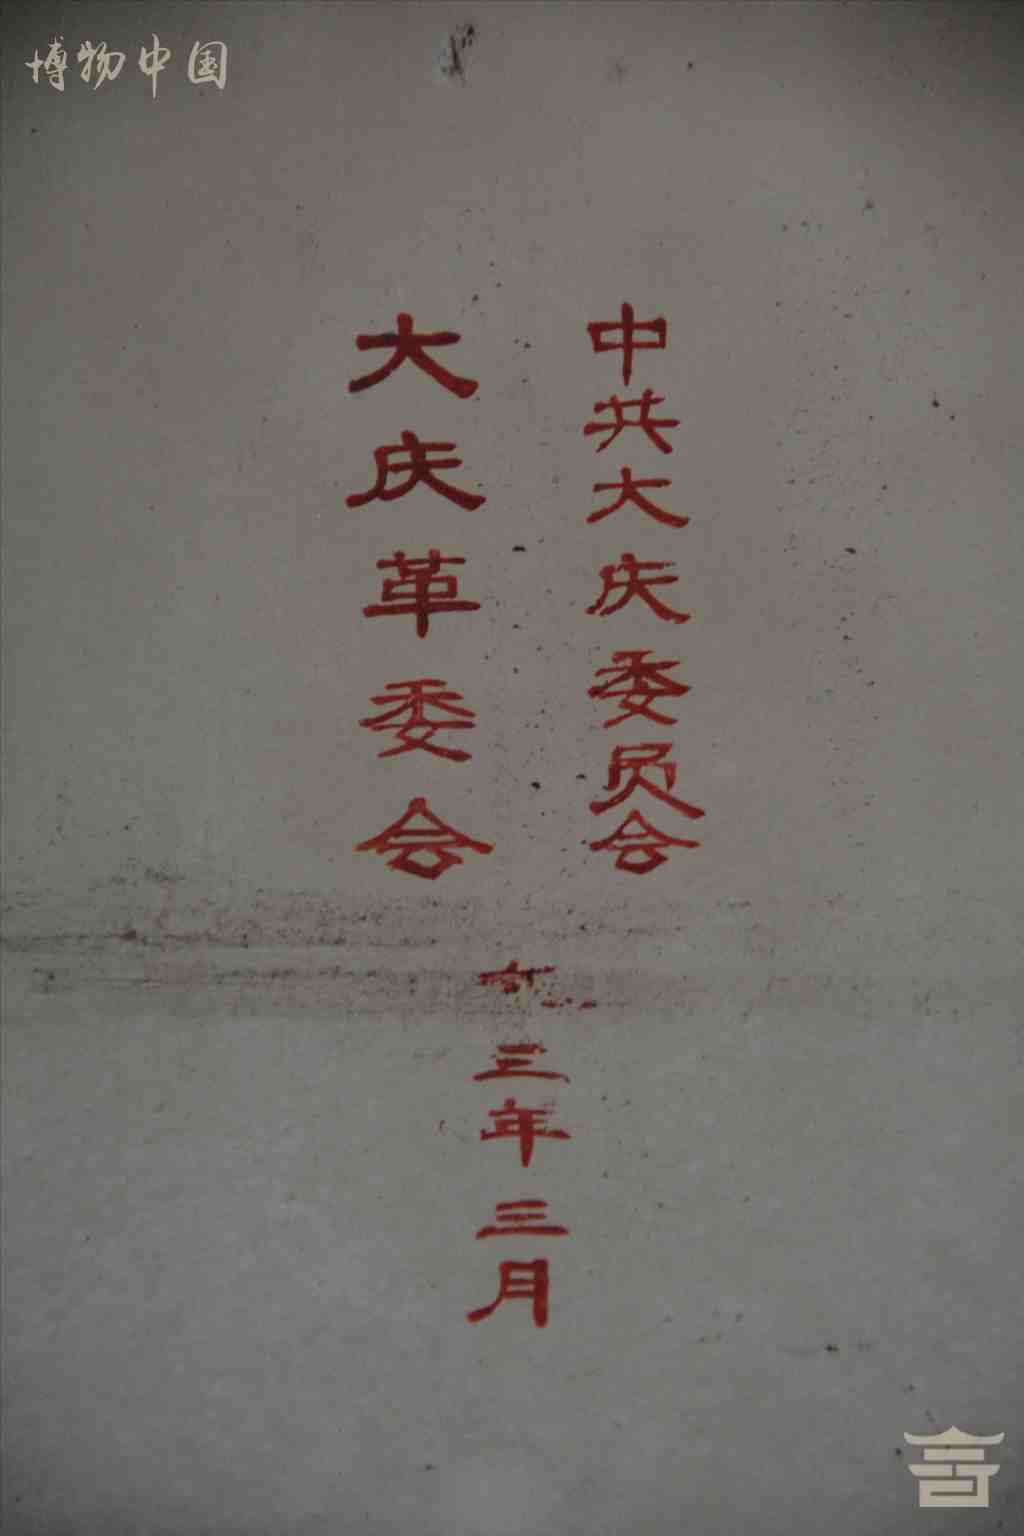 博物中国
中共大庆委员会
大庆革委会
三年三月